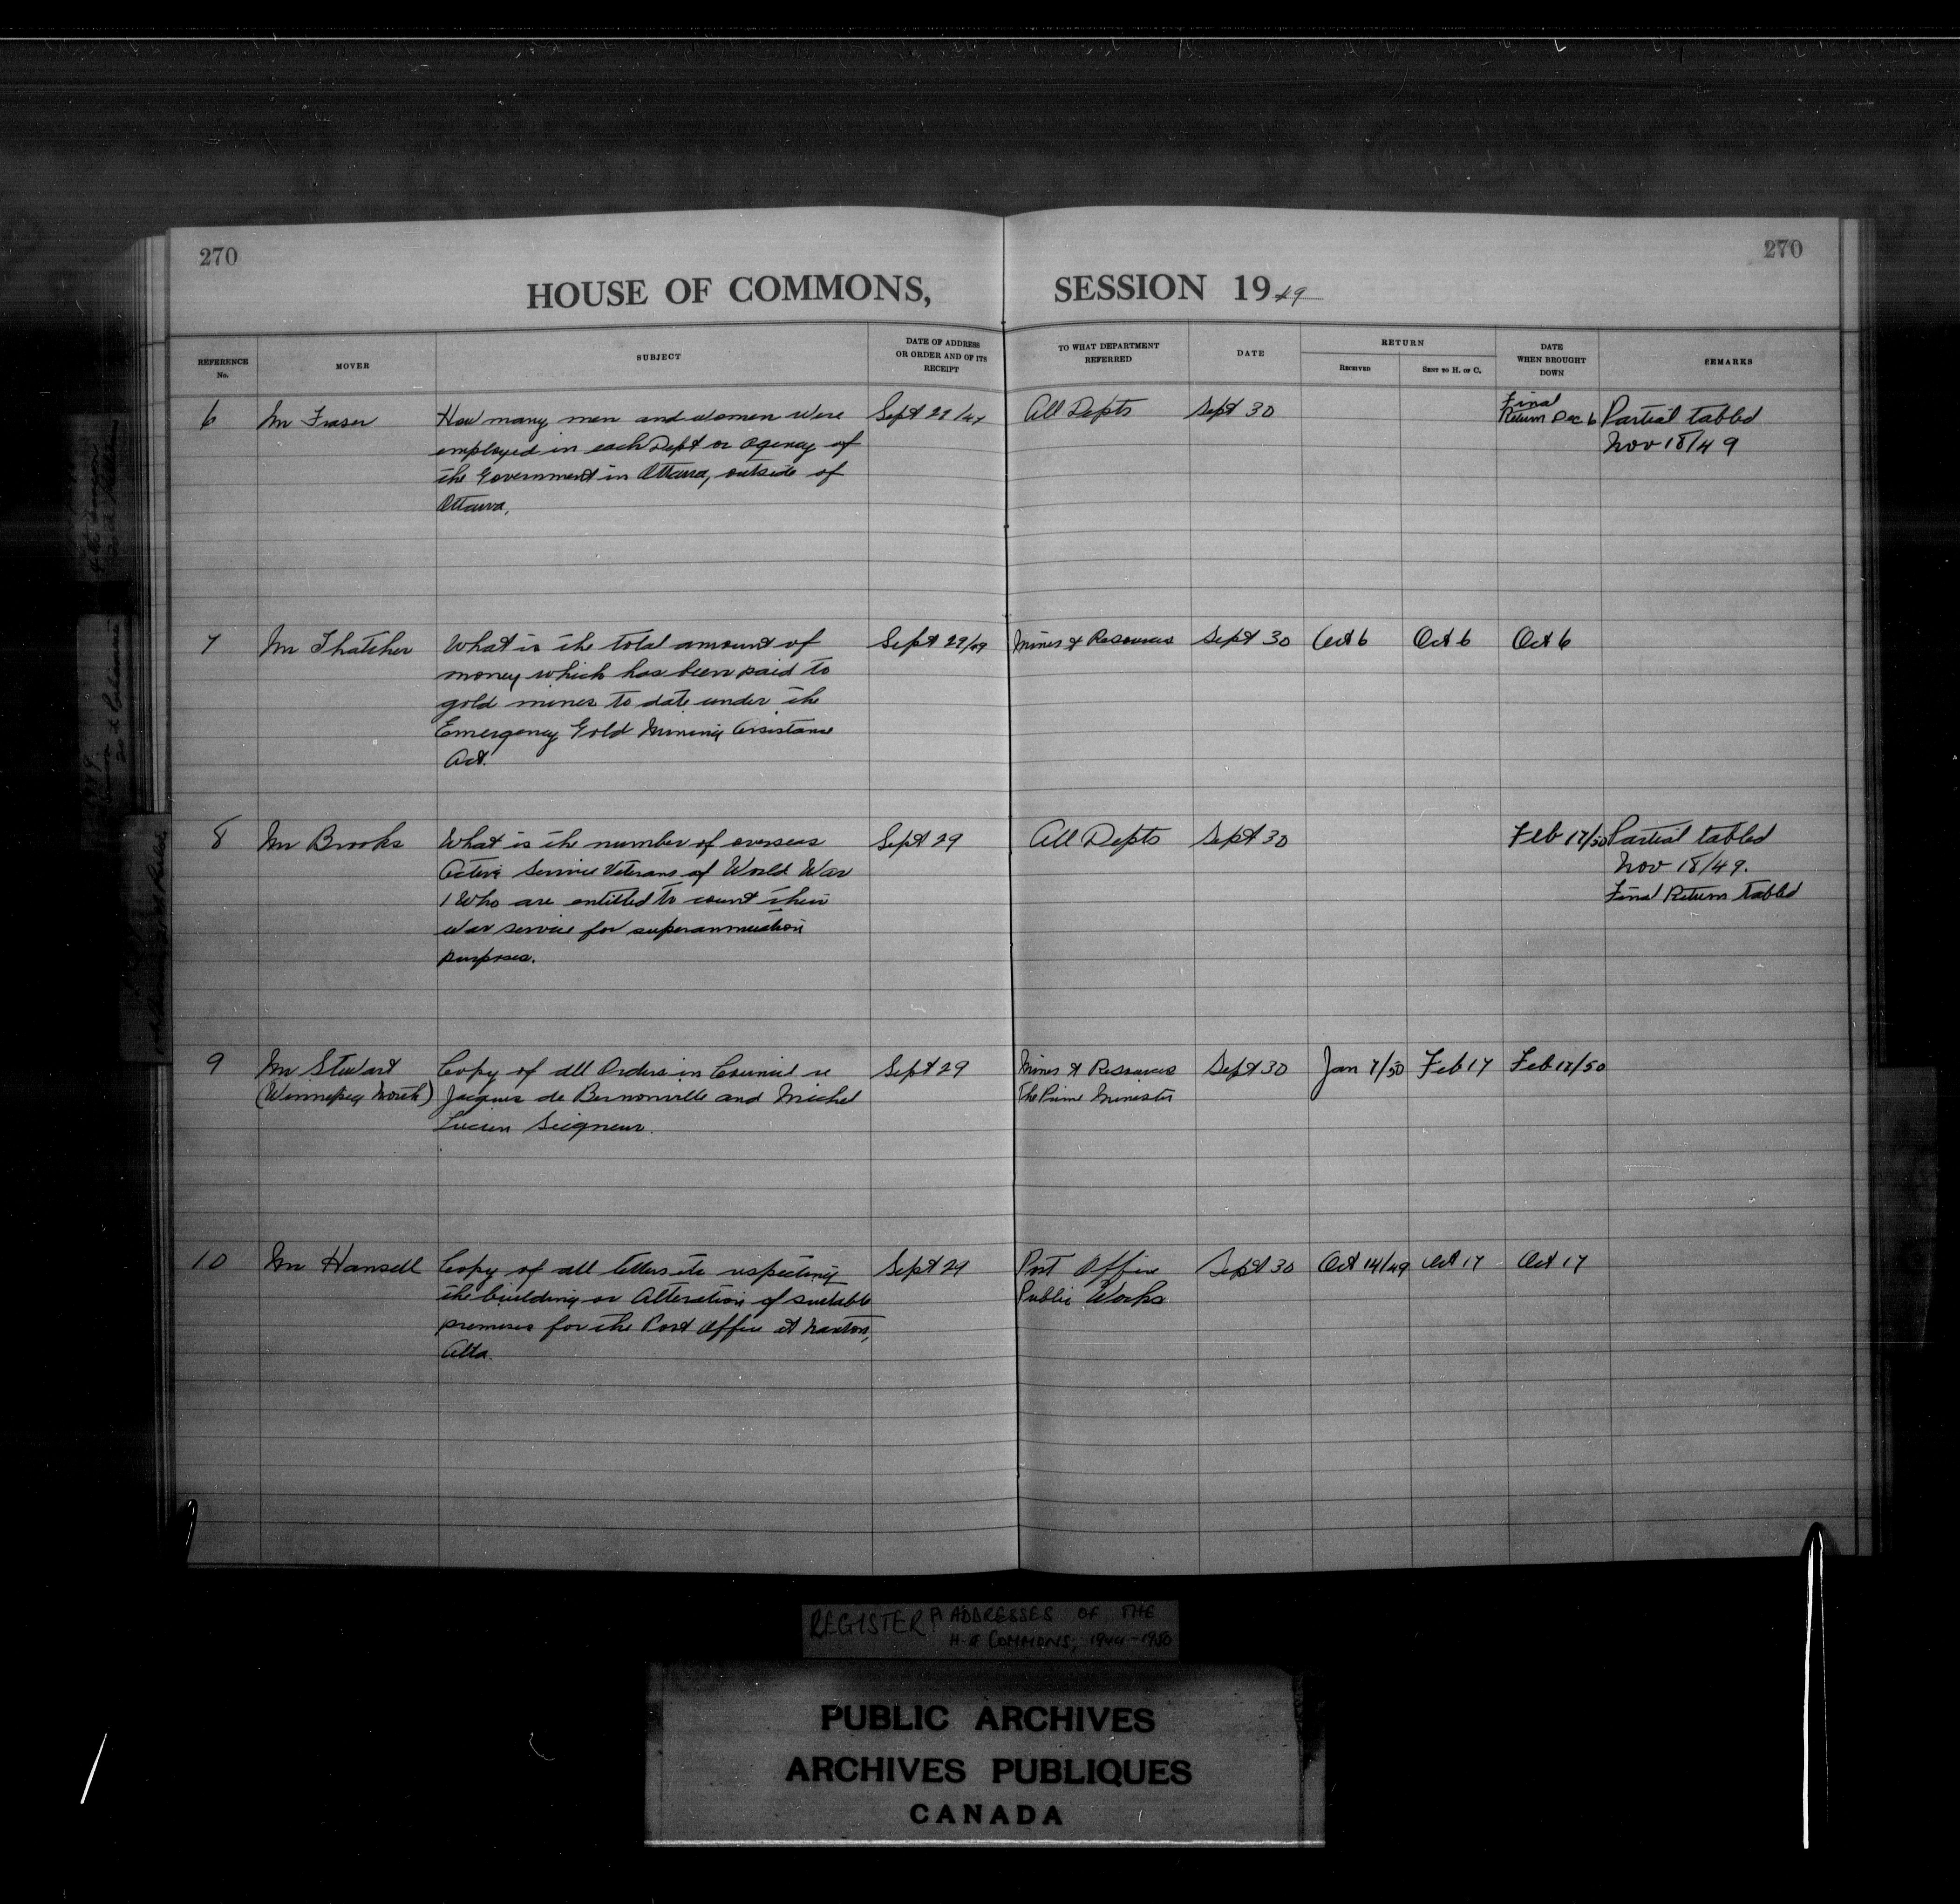 270
270
HOUSE OF COMMONS, SESSION 1949
REFERENCE No.
MOVER
SUBJECT
DATE OF ADDRESS OR ORDER AND OF ITS RECEIPT
TO WHAT DEPARTMENT REFERRED
DATE
RETURN
RECEIVED
SENT TO H. OF C.
DATE WHEN BROUGHT DOWN
REMARKS
6 Mr Fraser How many men and women were Sept 29/49 All Depts Sept 30 Final Return Dec 6 Partial tabled
employed in each Dept or Agency of Nov 18/49
the Government in Ottawa, outside of
Ottawa.
7 Mr Thatcher What is the total amount of Sept 29/49 Mines & Resources Sept 30 Oct 6 Oct 6 Oct 6
money which has been paid to
gold mines to date under the
Emergency Gold Mining Assistance
Act.
8 Mr Brooks What is the number of overseas Sept 29 All Depts Sept 30 Feb 17/50 Partial tabled
Active Service Veterans of World War Nov 18/49.
1 Who are entitled to count their Final Return tabled
war service for superannuation
purposes.
9 Mr Stewart Copy of all Orders in Council re Sept 29 Mines & Resources Sept 30 Jan 7/50 Feb 17 Feb 17/50
(Winnipeg North) Jacques de Bernonville and Michel The Prime Minister
Lucien Seigneur.
10 Mr Hansell Copy of all letters etc respecting Sept 29 Post Office Sept 30 Oct 14/49 Oct 17 Oct 17
the building or Alteration of suitable Public Works
premises for the Post Office at Nanton,
Alta.
REGISTER ADDRESSES OF THE
H. of COMMONS, 1944-1950
PUBLIC ARCHIVES
ARCHIVES PUBLIQUES
CANADA